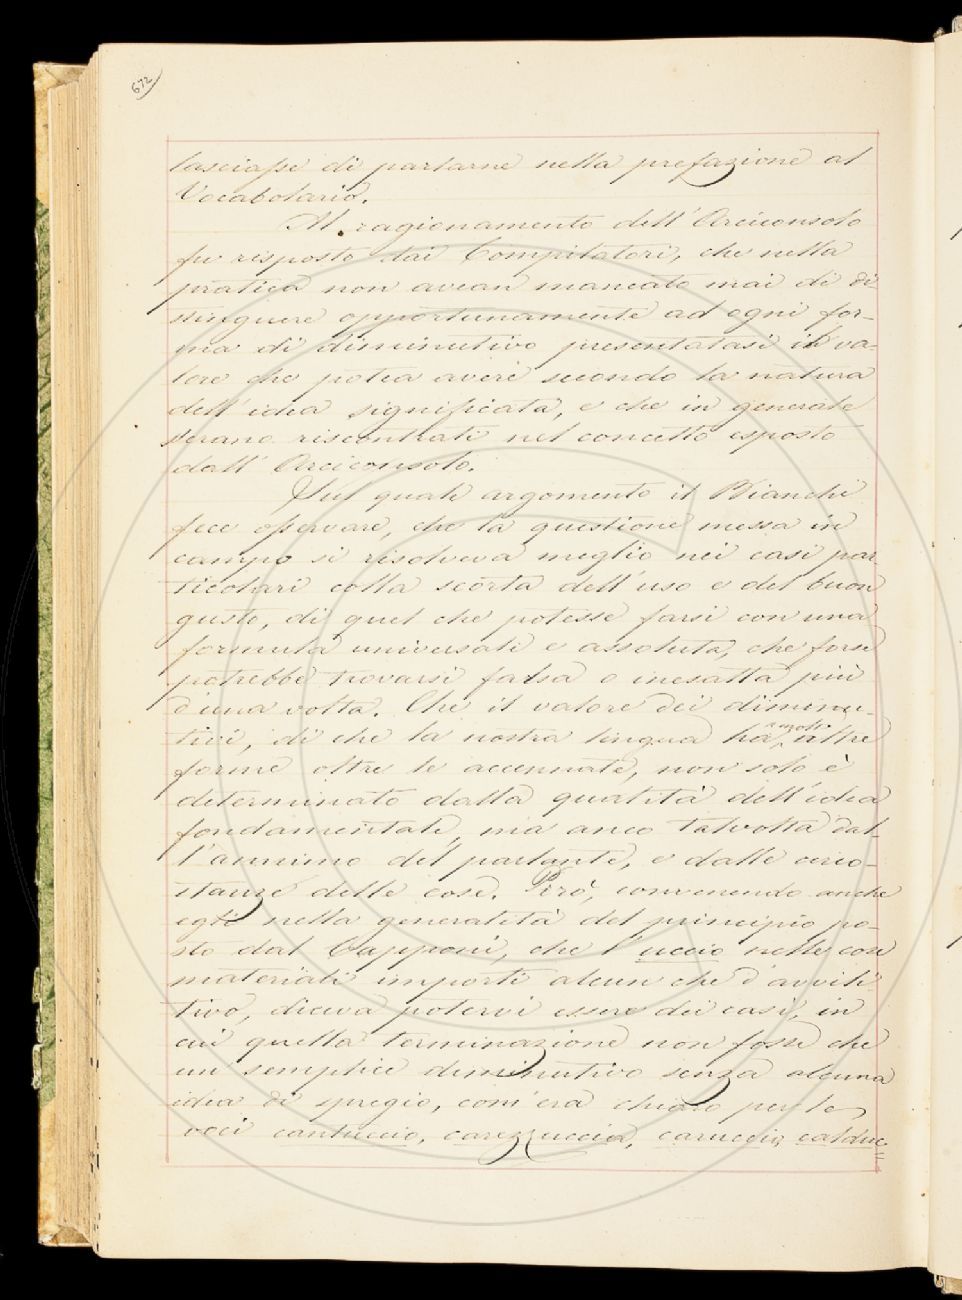 672
lasciasse di parlarne nella prefazione al
Vocabolario.
Al ragionamento dell'Arciconsolo
fu risposto dai Compilatori, che nella
pratica non avean mancato mai di di-
stinguere opportunamente ad ogni for-
ma di diminutivo presentatasi il va-
lore che potea avere secondo la natura
dell'idea significata, e che in generale
s'erano riscontrati nel concetto esposto
dall'Arciconsolo.
Sul quale argomento il Bianchi
fece osservare, che la questione messa in
campo si risolveva meglio nei casi par
ticolari colla scorta dell'uso e del buon
gusto, di quel che potesse farsi con una
formula universale e assoluta, che forse
potrebbe trovarsi falsa o inesatta più
d'una volta. Che il valore dei diminu-
tivi, di che la nostra lingua ha molte altre
forme oltre le accennate, non solo è
determinato dalla qualità dell'idea
fondamentale, ma anco talvolta dal-
l'animo del parlante, e dalle circo-
stanze delle cose. Però, convenendo anche
egli nella generalità del principio po-
sto dal Capponi, che l'uccio nelle cose
materiali importi alcun che d'avvili-
tivo, diceva potervi essere dei casi, in
cui quella terminazione non fosse che
un semplice diminutivo senza alcuna
idea di spregio, com'era chiaro per le
voci cantuccio, carezzuccia, caruccio, calduc=